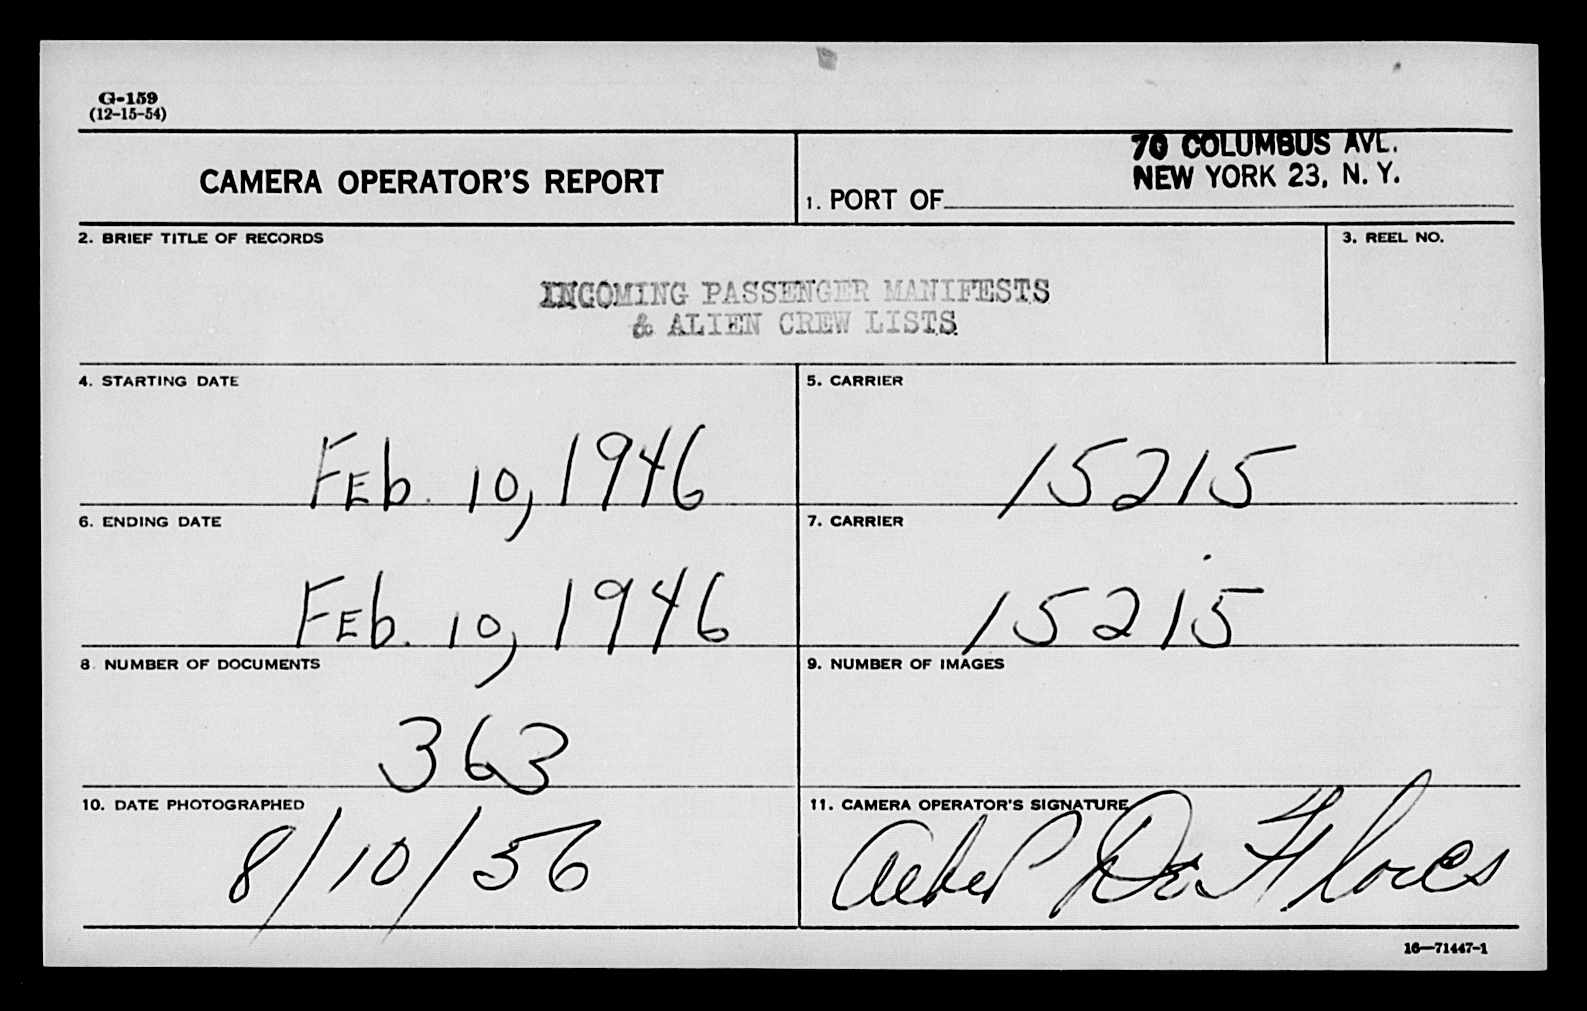 G-159
(12-15-54)
CAMERA OPERATOR'S REPORT
70 COLUMBUS AVE.
NEW YORK 23, N. Y.
1. PORT OF
2. BRIEF TITLE OF RECORDS
3. REEL NO.
INCOMING PASSENGER MANIFESTS
& ALIEN CREW LISTS
4. STARTING DATE
Feb. 10, 1946
5. CARRIER
15215
6. ENDING DATE
Feb. 10, 1946
7. CARRIER
15215
8. NUMBER OF DOCUMENTS
363
9. NUMBER OF IMAGES
10. DATE PHOTOGRAPHED
8/10/56
11. CAMERA OPERATOR'S SIGNATURE
De Flores
16—71447-1